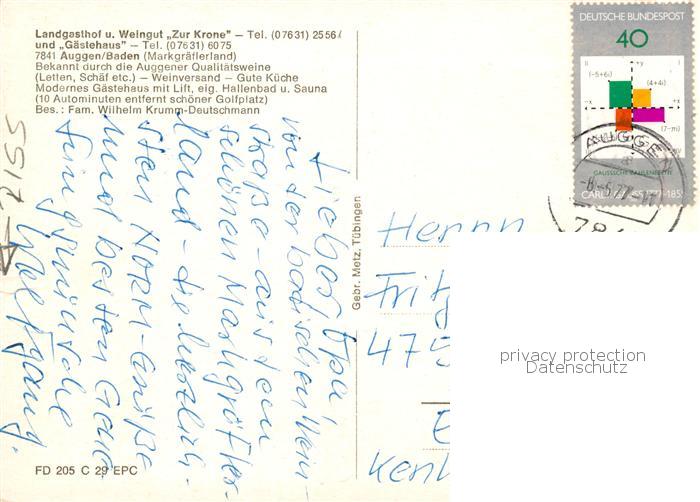 Landgasthof u. Weingut „Zur Krone" — Tel. (07631) 2556/
und „Gästehaus" — Tel. (07631) 6075
7841 Auggen/Baden (Markgräflerland)
Bekannt durch die Auggener Qualitätsweine
(Letten, Schäf etc.) — Weinversand — Gute Küche
Modernes Gästehaus mit Lift, eig. Hallenbad u. Sauna
(10 Autominuten entfernt schöner Golfplatz)
Bes.: Fam. Wilhelm Krumm-Deutschmann
Lieber Opa!
von der badischen Wein-
straße - aus dem
schönen Markgräfler-
land - die herzlich-
sten
und besten
Wolfgang.
A-2155
FD 205 C 29 EPC
Gebr. Metz, Tübingen
DEUTSCHE BUNDESPOST
40
II
+y
(-5+6i)
(4+4i)
(7-πi)
GAUSSSCHE ZAHLENEBENE
CARL
AUGGEN
-8.-5.77-17
784
Herrn
Fritz
475
privacy protection
Datenschutz